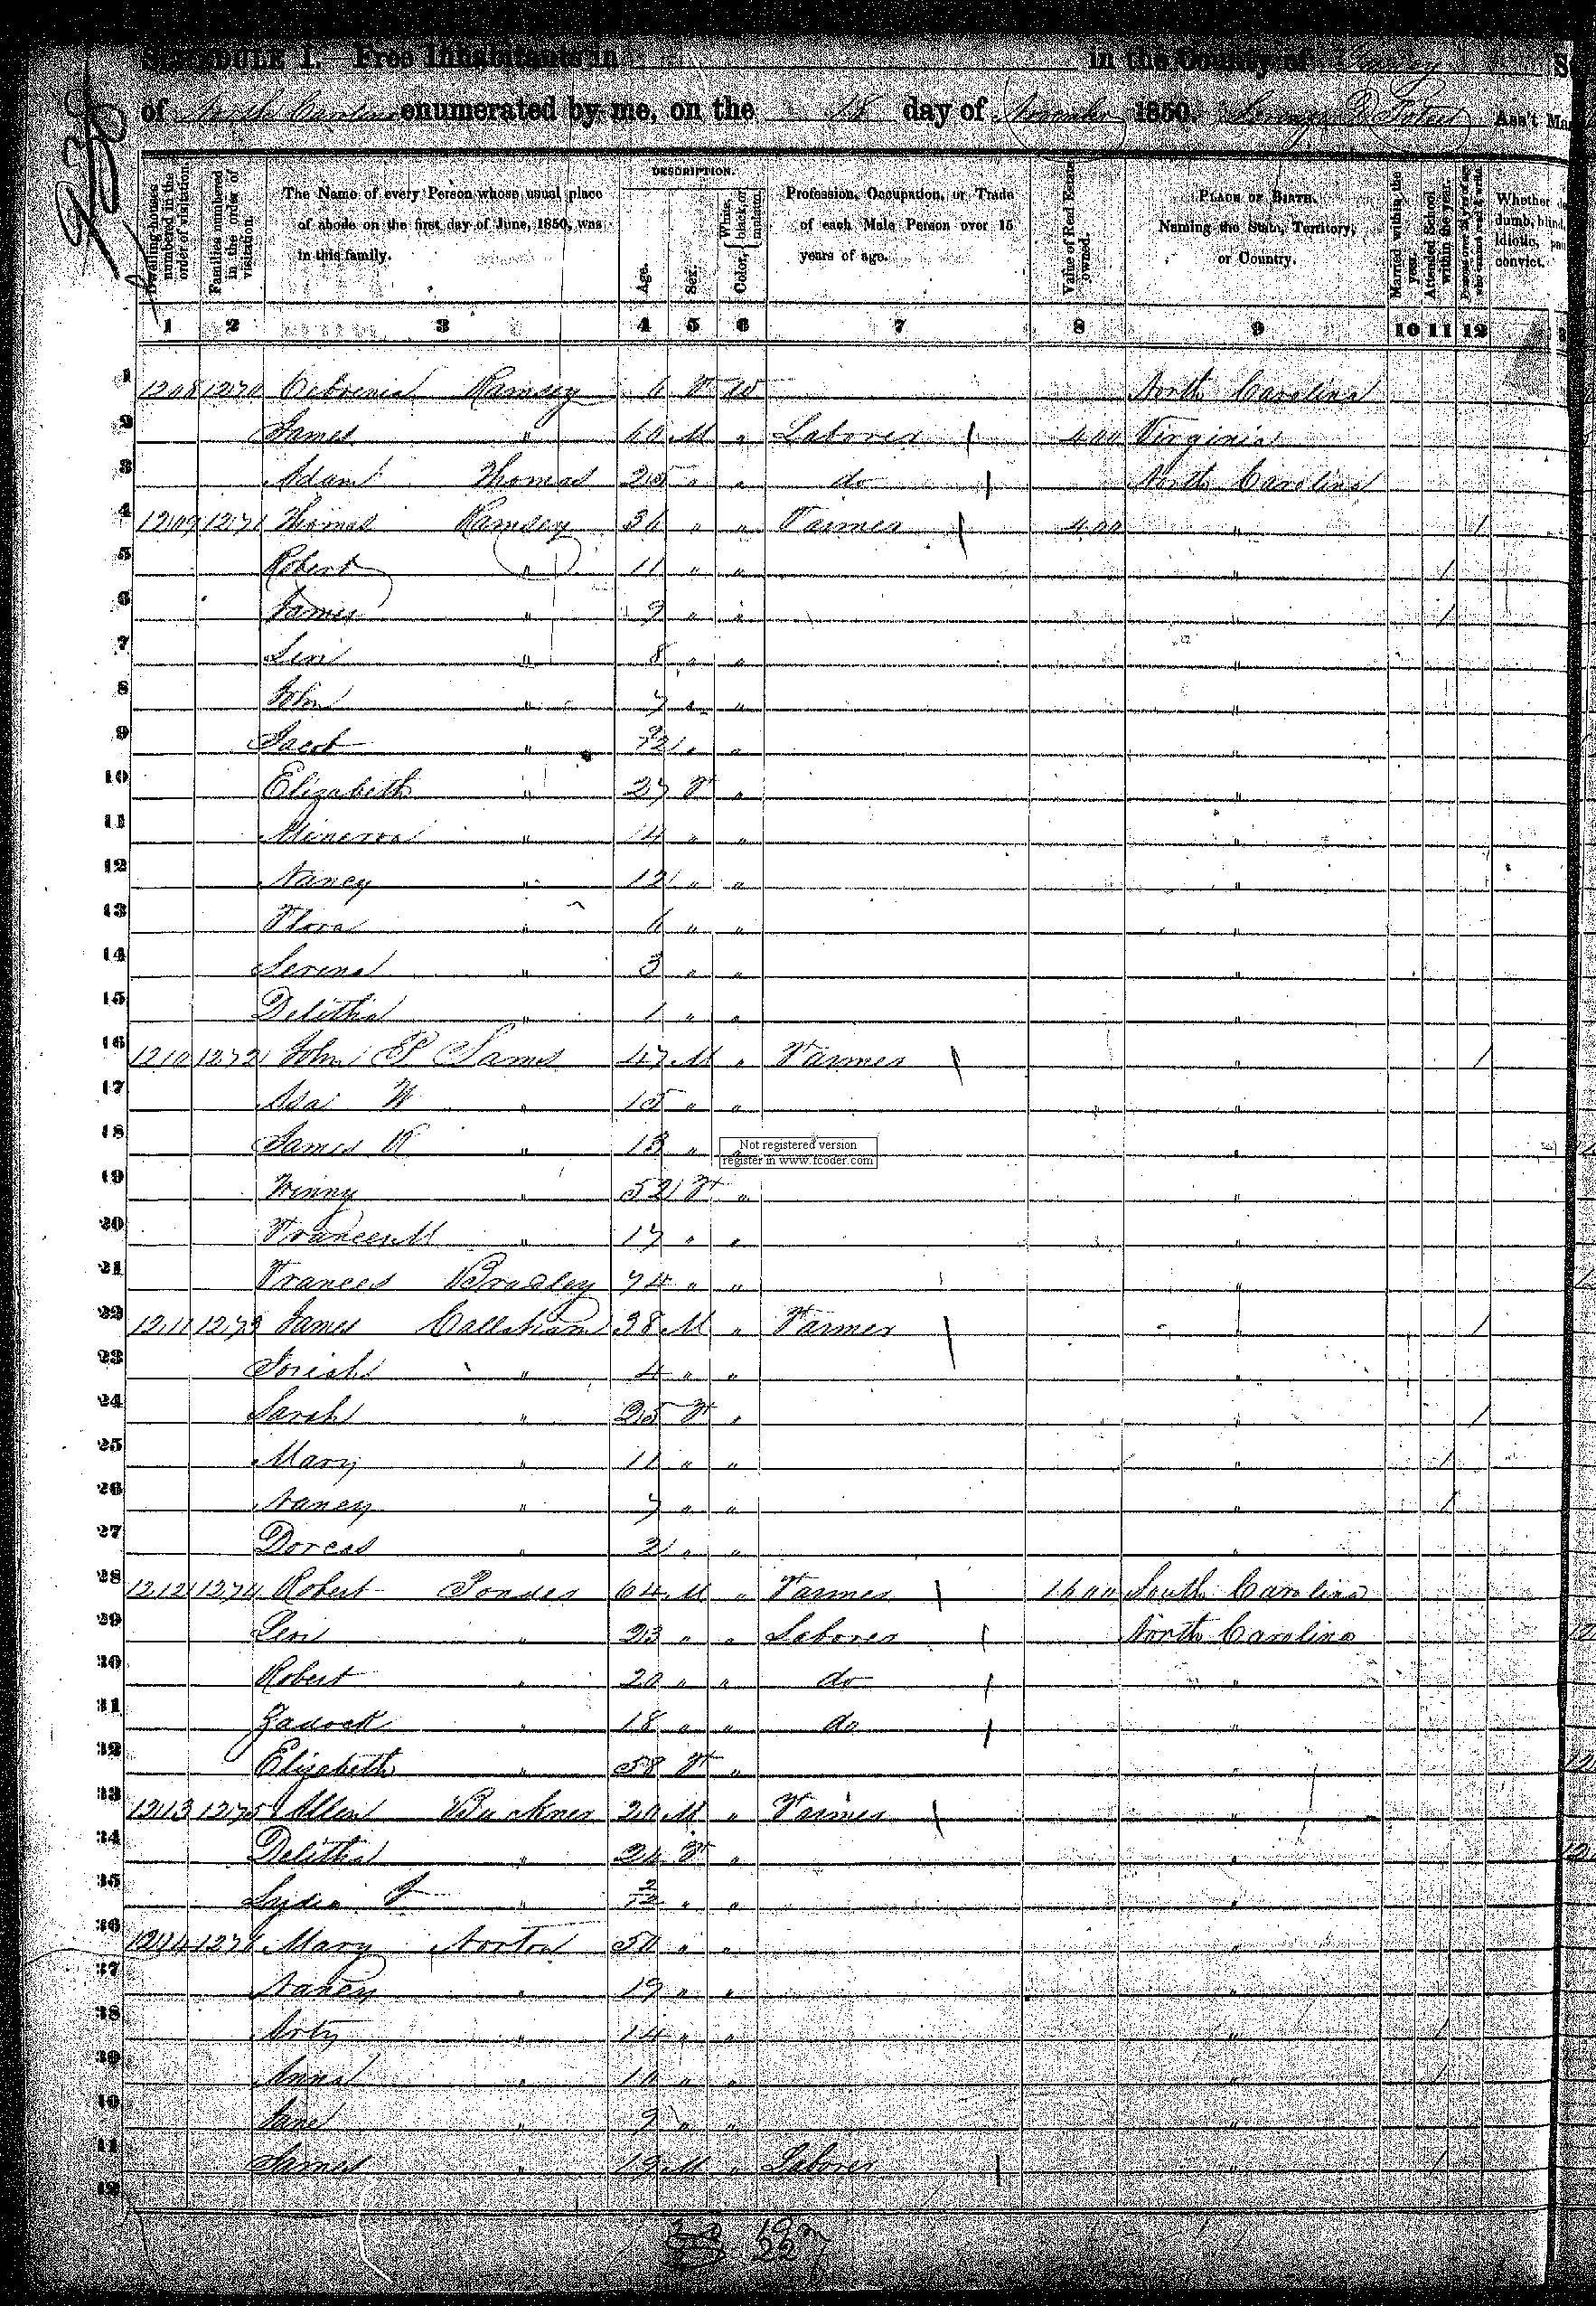 938
SCHEDULE I.—Free Inhabitants in in the County of Yancey
of North Carolina enumerated by me, on the 18 day of November 1850. Ass't Mar
Dwelling-houses numbered in the order of visitation.
Families numbered in the order of visitation.
The Name of every Person whose usual place of abode on the first day of June, 1850, was in this family.
DESCRIPTION.
Age.
Sex.
Color, { White, black, or mulatto.
Profession, Occupation, or Trade of each Male Person over 15 years of age.
Value of Real Estate owned.
PLACE OF BIRTH. Naming the State, Territory, or Country.
Married within the year.
Attended School within the year.
Persons over 20 y'rs of age who cannot read & write.
Whether dumb, blind, idiotic, convict.
1 2 3 4 5 6 7 8 9 10 11 12
1 1208 1270 Ramsey 6 F W North Carolina
2 James " 60 M " Laborer 400 Virginia
3 Adam Thomas 25 " " do North Carolina
4 1209 1271 Thomas Ramsey 36 " " Farmer 400 " 1
5 Robert " 11 " " " 1
6 James " 9 " " " 1
7 Levi " 8 " " "
8 John " 7 " " "
9 Jacob " " " "
10 Elizabeth " 27 F " "
11 Minerva " 14 " " "
12 Nancy " 12 " " "
13 Flora " 6 " " "
14 Serena " 3 " " "
15 Delitha " 1 " " "
16 1210 1272 John P Sams 47 M " Farmer " 1
17 Asa W " 15 " " "
18 James R " 13 " " "
Not registered version
register in www.fcoder.com
19 Winny " 52 F " "
20 Frances M " 17 " " "
21 Frances Bradley 74 " " "
22 1211 1273 James Callahan 38 M " Farmer " 1
23 Josiah " 4 " " "
24 Sarah " 25 F " " 1
25 Mary " 11 " " " 1
26 Nancy " 7 " " " 1
27 Dorcas " 2 " " "
28 1212 1274 Robert Ponder 64 M " Farmer 1600 South Carolina
29 Levi " 23 " " Laborer North Carolina
30 Robert " 20 " " do "
31 Zadock " 18 " " do "
32 Elizabeth " 58 F " "
33 1213 1275 Allen Buckner 20 M " Farmer "
34 Delitha " 24 F " "
35 Lydia J " 2/12 " " "
36 1214 1276 Mary Norton 50 " " "
37 Nancy " 19 " " "
38 Arty " 14 " " " 1
39 Anna " 10 " " " 1
40 Jane " 9 " " "
41 James " 19 M " Laborer " 1
42
19
22